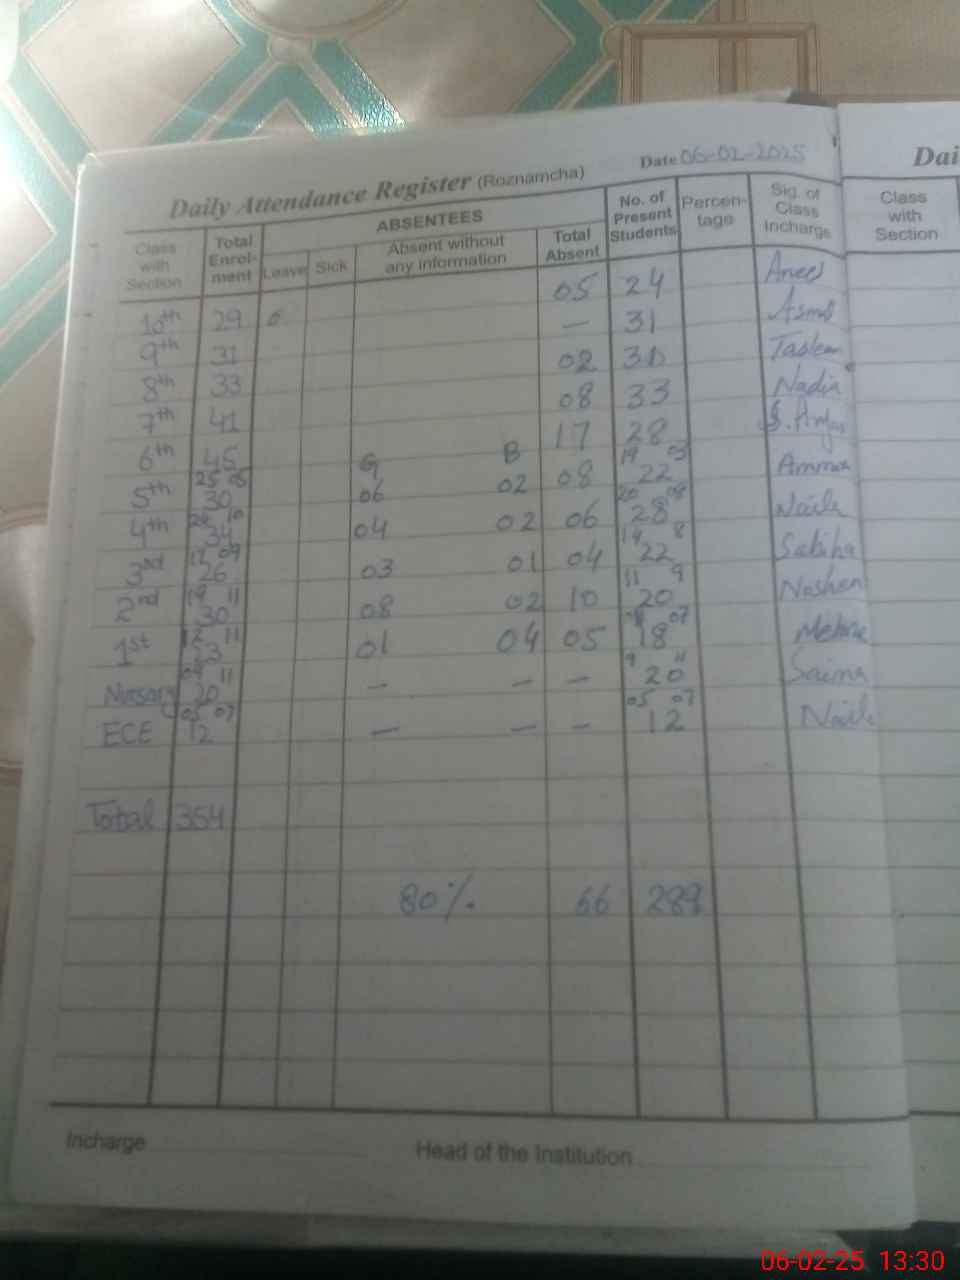 Date 06-02-2025
Daily Attendance Register (Roznamcha)
Dai
Class with Section | Total Enrol-ment | ABSENTEES | No. of Present Students | Percen-tage | Sig. of Class Incharge
Leave | Sick | Absent without any information | Total Absent
Class with Section
10th 29 05 24
9th 31 — 31 Asma
8th 33 02 31
7th 41 08 33 Nadia
6th 45 G B 17 28
25 05 19 03
5th 30 06 02 08 22
24 10 20 08
4th 34 04 02 06 28 Naila
17 09 14 8
3rd 26 03 01 04 22 Sabiha
19 11 11 9
2nd 30 08 02 10 20
12 11 07
1st 23 01 04 05 18
09 11 9 11
Nursary 20 — — — 20 Saima
05 07 05 07
ECE 12 — — — 12 Naila
Total 354
80% 66 289
Incharge
Head of the Institution
06-02-25 13:30